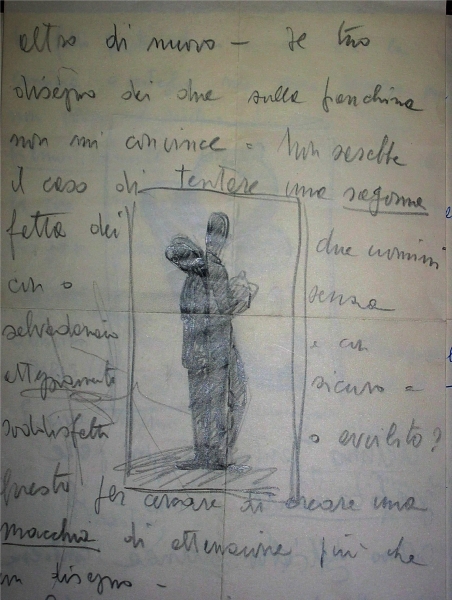 altro di nuovo - Il tuo
disegno dei due sulla panchina
non mi convince = Non sarebbe
il caso di tentare una sagoma
fatta dei due uomini
con o senza
salvadanaio e con
atteggiamento sicuro =
soddisfatti o avvilito?
Questo per cercare di creare una
macchia di attenzione più che
un disegno -